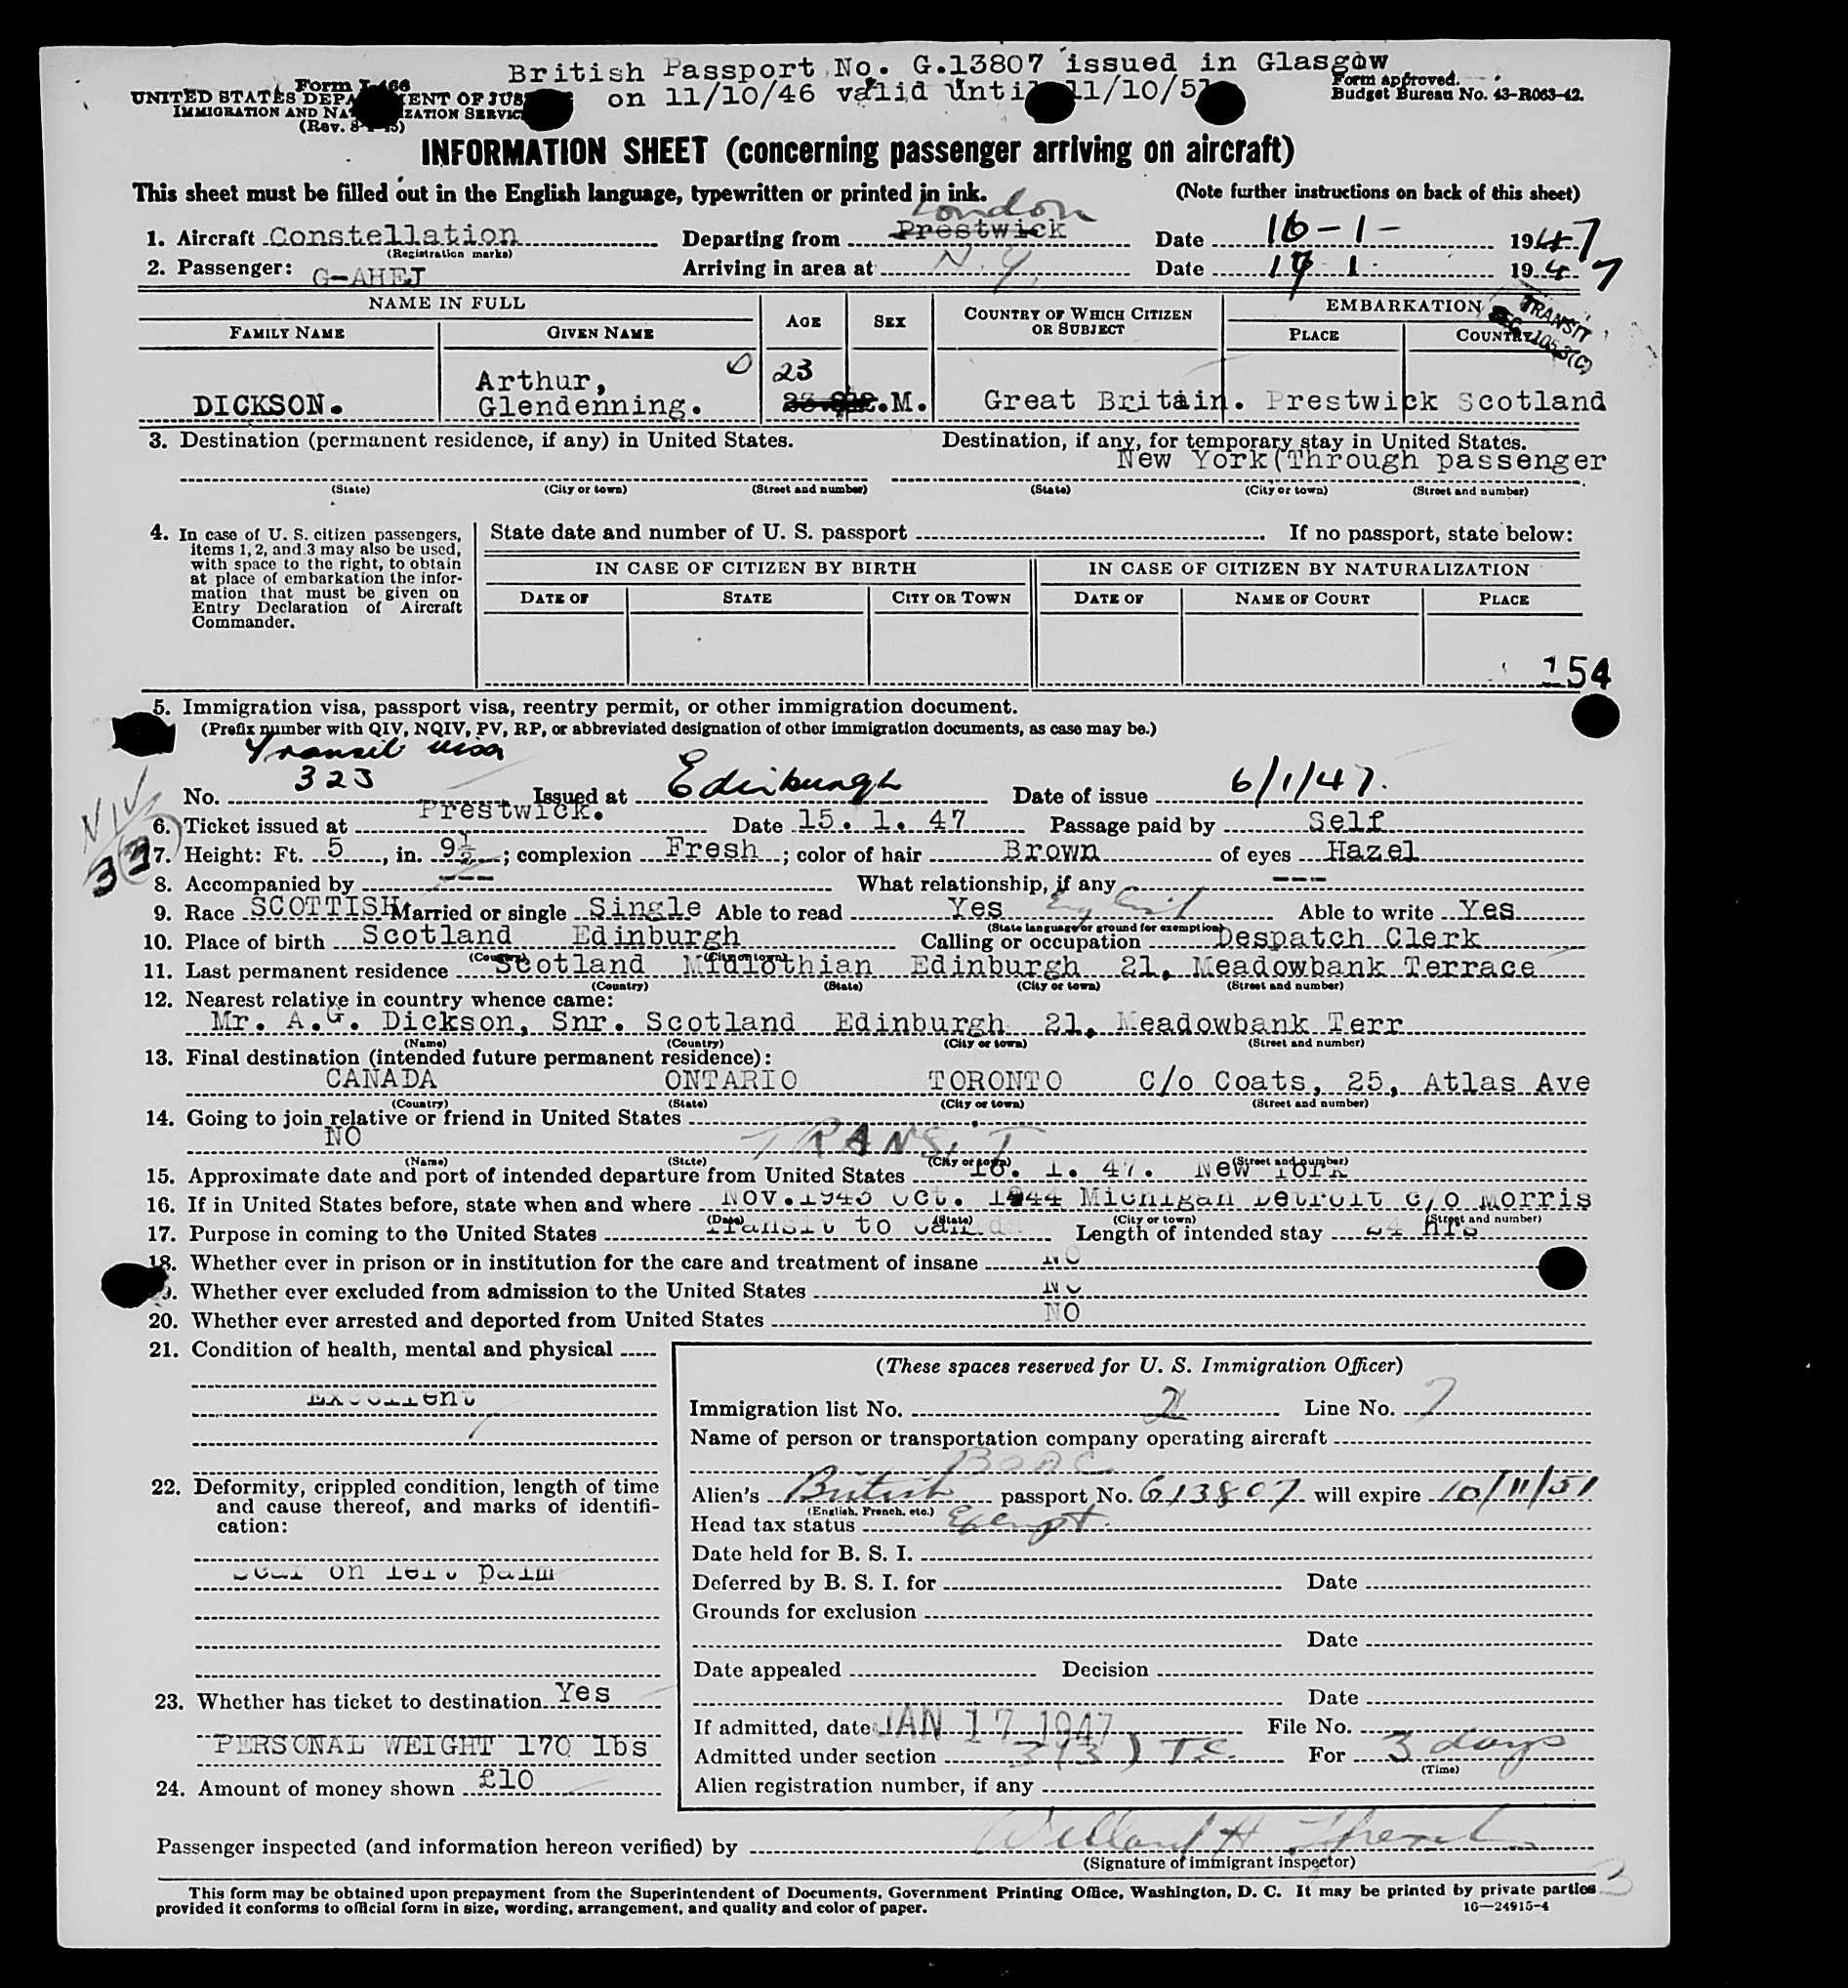 British Passport No. G.13807 issued in Glasgow
on 11/10/46 valid until 11/10/51
Form I-466
UNITED STATES DEPARTMENT OF JUSTICE
IMMIGRATION AND NATURALIZATION SERVICE
(Rev. 8-1-45)
Form approved.
Budget Bureau No. 43-R063-42.
INFORMATION SHEET (concerning passenger arriving on aircraft)
This sheet must be filled out in the English language, typewritten or printed in ink. (Note further instructions on back of this sheet)
London
1. Aircraft Constellation Departing from Prestwick Date 16-1- 1947
(Registration marks)
2. Passenger: G-AHEJ Arriving in area at N.Y. Date 17 1. 1947
NAME IN FULL AGE SEX COUNTRY OF WHICH CITIZEN OR SUBJECT EMBARKATION
FAMILY NAME GIVEN NAME PLACE COUNTRY
TRANSIT
SEC. 105.3(C)
DICKSON. Arthur, Glendenning. 23 M. Great Britain. Prestwick Scotland
3. Destination (permanent residence, if any) in United States. Destination, if any, for temporary stay in United States.
New York(Through passenger
(State) (City or town) (Street and number) (State) (City or town) (Street and number)
4. In case of U. S. citizen passengers, items 1, 2, and 3 may also be used, with space to the right, to obtain at place of embarkation the information that must be given on Entry Declaration of Aircraft Commander.
State date and number of U. S. passport If no passport, state below:
IN CASE OF CITIZEN BY BIRTH IN CASE OF CITIZEN BY NATURALIZATION
DATE OF STATE CITY OR TOWN DATE OF NAME OF COURT PLACE
154
5. Immigration visa, passport visa, reentry permit, or other immigration document.
(Prefix number with QIV, NQIV, PV, RP, or abbreviated designation of other immigration documents, as case may be.)
Transit visa
No. 323 Issued at Edinburgh Date of issue 6/1/47.
NIV
6. Ticket issued at Prestwick. Date 15. 1. 47 Passage paid by Self
7. Height: Ft. 5, in. 9½; complexion Fresh; color of hair Brown of eyes Hazel
8. Accompanied by --- What relationship, if any ---
9. Race SCOTTISH Married or single Single Able to read Yes English Able to write Yes
(State language or ground for exemption)
10. Place of birth Scotland Edinburgh Calling or occupation Despatch Clerk
(Country) (City or town)
11. Last permanent residence Scotland Midlothian Edinburgh 21, Meadowbank Terrace
(Country) (State) (City or town) (Street and number)
12. Nearest relative in country whence came:
Mr. A.G. Dickson, Snr. Scotland Edinburgh 21, Meadowbank Terr
(Name) (Country) (City or town) (Street and number)
13. Final destination (intended future permanent residence):
CANADA ONTARIO TORONTO C/o Coats, 25, Atlas Ave
(Country) (State) (City or town) (Street and number)
14. Going to join relative or friend in United States
NO TRANSIT
(Name) (State) (City or town) (Street and number)
15. Approximate date and port of intended departure from United States 18. 1. 47. New York
16. If in United States before, state when and where Nov.1943 Oct. 1944 Michigan Detroit c/o Morris
(Date) (State) (City or town) (Street and number)
17. Purpose in coming to the United States Transit to Canada Length of intended stay 24 Hrs
18. Whether ever in prison or in institution for the care and treatment of insane NO
19. Whether ever excluded from admission to the United States NO
20. Whether ever arrested and deported from United States NO
21. Condition of health, mental and physical
Excellent
22. Deformity, crippled condition, length of time and cause thereof, and marks of identification:
Scar on left palm
23. Whether has ticket to destination Yes
PERSONAL WEIGHT 170 lbs
24. Amount of money shown £10
(These spaces reserved for U. S. Immigration Officer)
Immigration list No. 2 Line No. 7
Name of person or transportation company operating aircraft
BOAC
Alien's British passport No. G13807 will expire 10/11/51
(English, French, etc.)
Head tax status Exempt.
Date held for B. S. I.
Deferred by B. S. I. for Date
Grounds for exclusion
Date
Date appealed Decision
Date
If admitted, date JAN 17 1947 File No.
Admitted under section 3(3) T.C. For 3 days
(Time)
Alien registration number, if any
Passenger inspected (and information hereon verified) by Willard H.
(Signature of immigrant inspector)
This form may be obtained upon prepayment from the Superintendent of Documents, Government Printing Office, Washington, D. C. It may be printed by private parties
provided it conforms to official form in size, wording, arrangement, and quality and color of paper. 16—24915-4